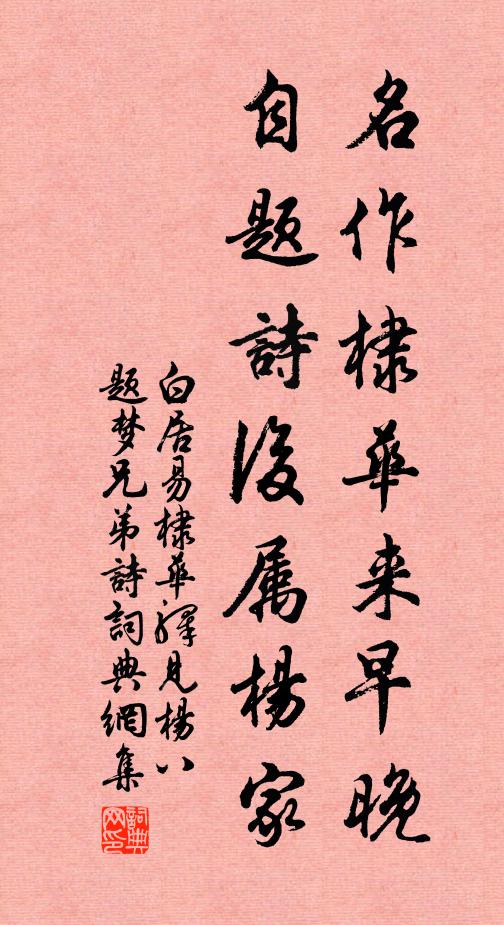 名作棣華来早晚
自题詩後属楊家
白居易棣華驛見楊八
题梦兄弟詩詞典網集
詞典网印